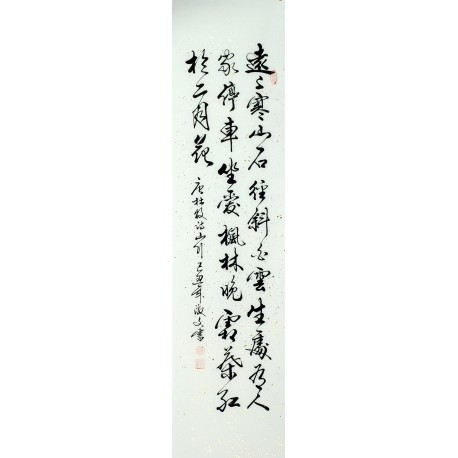 遠上寒山石徑斜白雲生處有人
家停車坐愛楓林晚霜葉紅
於二月花
唐杜牧詩山行己丑年書